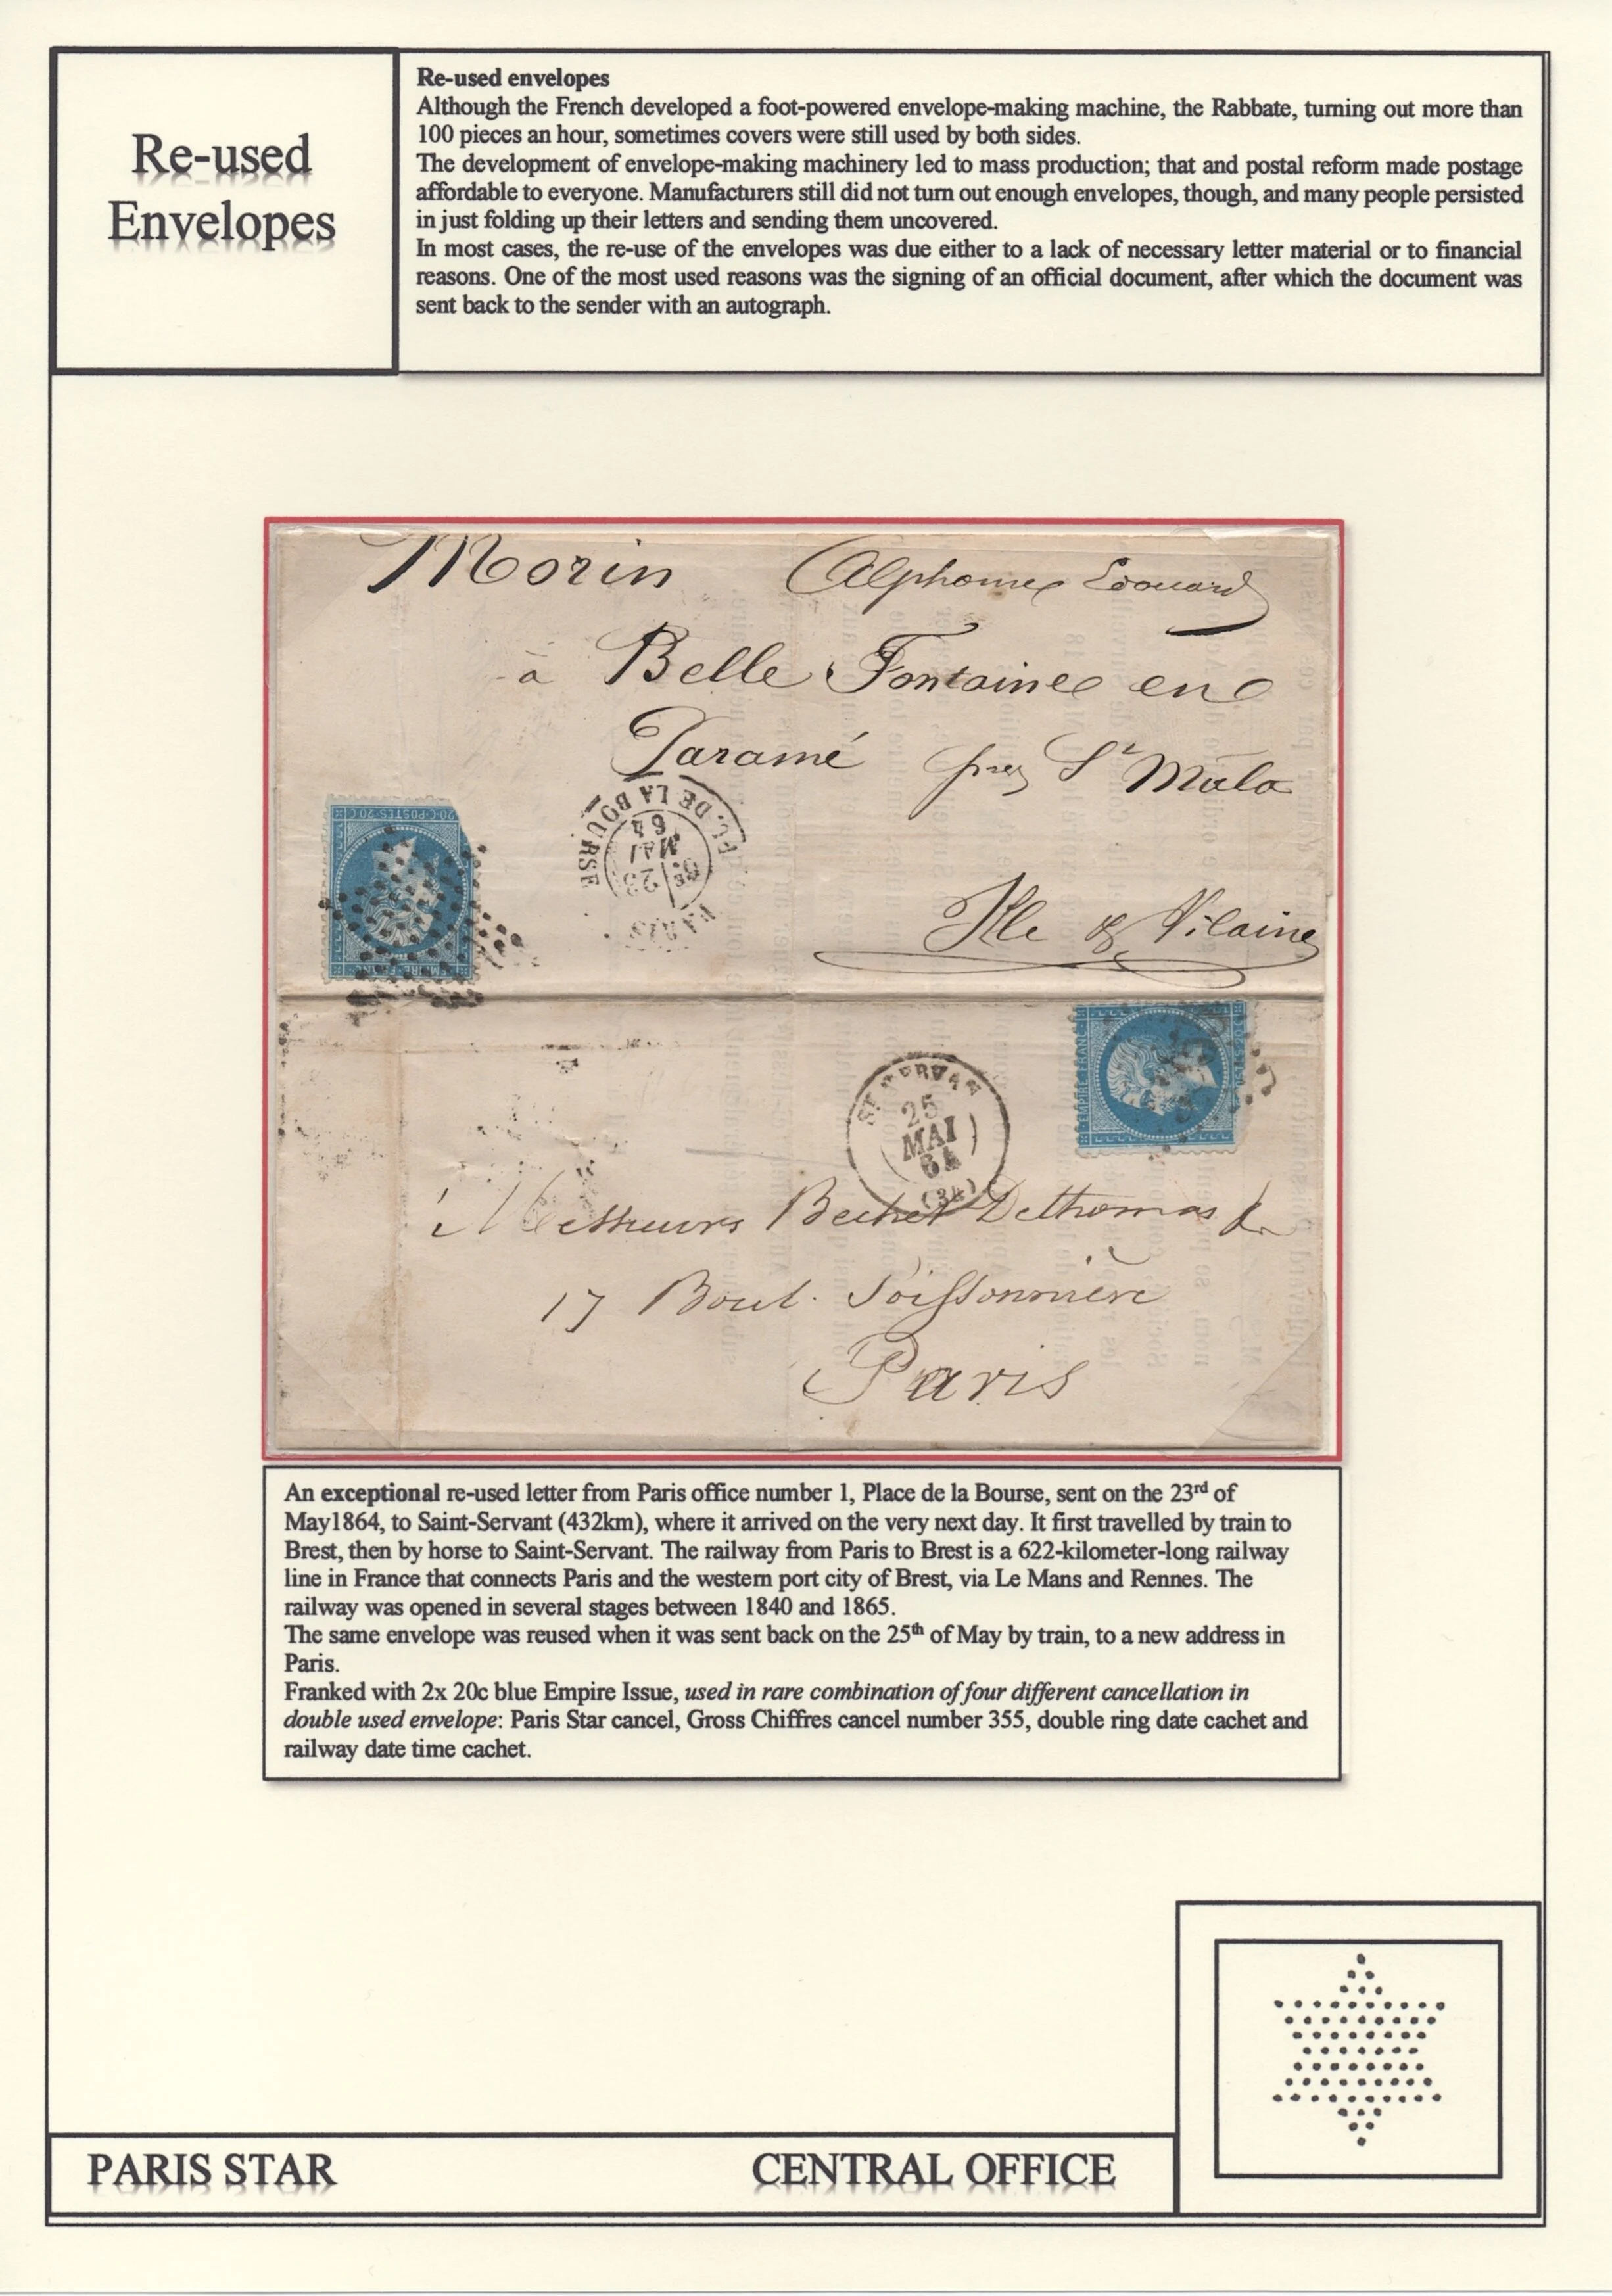 Re-used
Envelopes
Re-used envelopes
Although the French developed a foot-powered envelope-making machine, the Rabbate, turning out more than
100 pieces an hour, sometimes covers were still used by both sides.
The development of envelope-making machinery led to mass production; that and postal reform made postage
affordable to everyone. Manufacturers still did not turn out enough envelopes, though, and many people persisted
in just folding up their letters and sending them uncovered.
In most cases, the re-use of the envelopes was due either to a lack of necessary letter material or to financial
reasons. One of the most used reasons was the signing of an official document, after which the document was
sent back to the sender with an autograph.
Morin Alphonse Edouard
à Belle Fontaine en
Paramé près St Malo
Ille & Vilaine
20 C POSTES 20 C
EMPIRE FRANC
PARIS
PL. DE LA BOURSE
23
MAI
64
EMPIRE FRANC
ST SERVAN
25
MAI
64
(34)
à Messieurs Bechet Dethomas &
17 Boul. Poissonnière
Paris
An exceptional re-used letter from Paris office number 1, Place de la Bourse, sent on the 23rd of
May1864, to Saint-Servant (432km), where it arrived on the very next day. It first travelled by train to
Brest, then by horse to Saint-Servant. The railway from Paris to Brest is a 622-kilometer-long railway
line in France that connects Paris and the western port city of Brest, via Le Mans and Rennes. The
railway was opened in several stages between 1840 and 1865.
The same envelope was reused when it was sent back on the 25th of May by train, to a new address in
Paris.
Franked with 2x 20c blue Empire Issue, used in rare combination of four different cancellation in
double used envelope: Paris Star cancel, Gross Chiffres cancel number 355, double ring date cachet and
railway date time cachet.
PARIS STAR
CENTRAL OFFICE